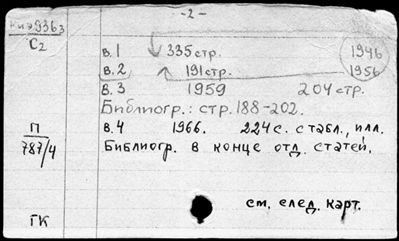 -2-
С2
в. 1 335 стр. 1946
в. 2 191 стр. 1956
в. 3 1959 204 стр.
Библиогр.: стр. 188-202.
П
787/4
в. 4 1966. 224 с. с табл., илл.
Библиогр. в конце отд. статей.
см. след. карт.
ГК